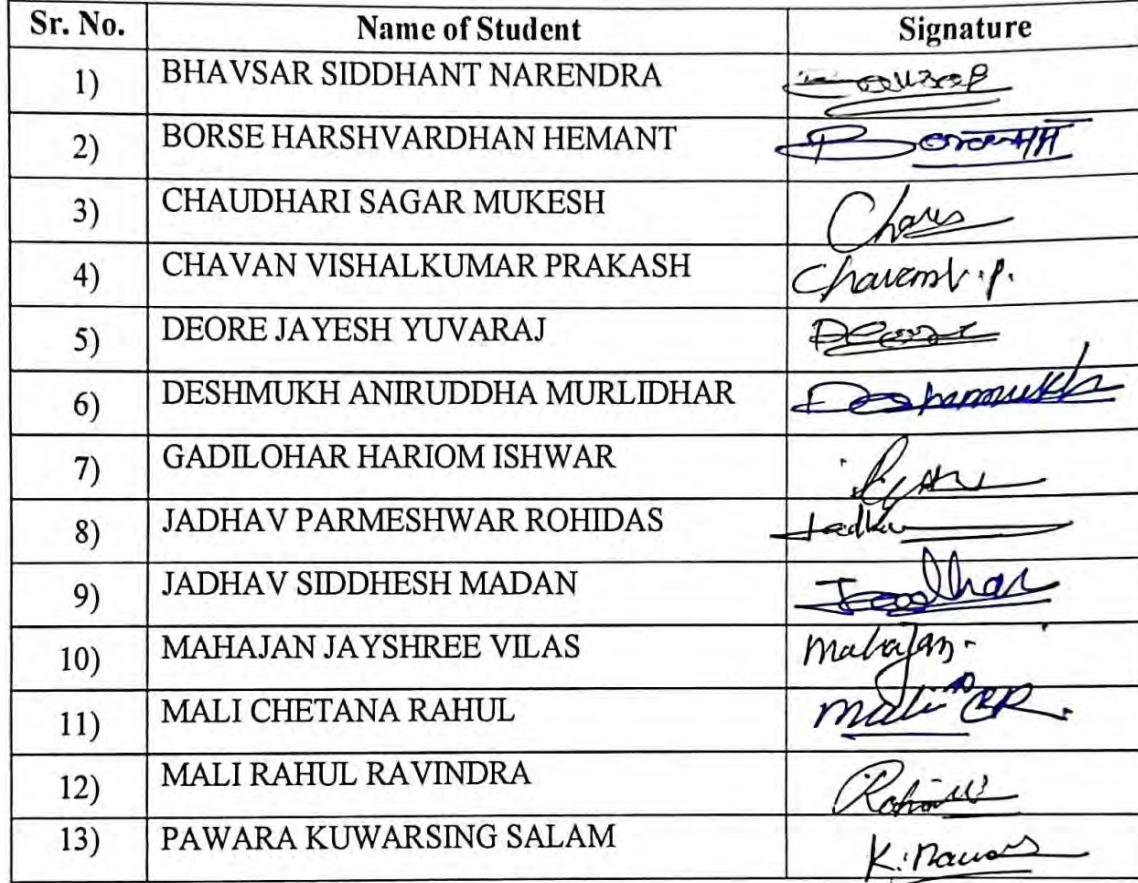 Sr. No. Name of Student Signature
1) BHAVSAR SIDDHANT NARENDRA
2) BORSE HARSHVARDHAN HEMANT
3) CHAUDHARI SAGAR MUKESH
4) CHAVAN VISHALKUMAR PRAKASH Chavan V.P.
5) DEORE JAYESH YUVARAJ Deore
6) DESHMUKH ANIRUDDHA MURLIDHAR Deshamukh
7) GADILOHAR HARIOM ISHWAR
8) JADHAV PARMESHWAR ROHIDAS
9) JADHAV SIDDHESH MADAN Jaadhav
10) MAHAJAN JAYSHREE VILAS Mahajan.
11) MALI CHETANA RAHUL Mali CR.
12) MALI RAHUL RAVINDRA
13) PAWARA KUWARSING SALAM